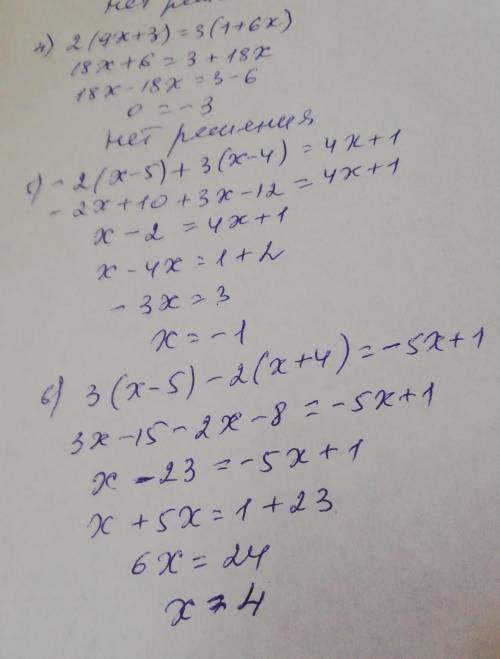 нет реше
4) 2(9x+3)=3(1+6x)
18x+6=3+18x
18x-18x=3-6
0=-3
нет решения
5) -2(x-5)+3(x-4)=4x+1
-2x+10+3x-12=4x+1
x-2=4x+1
x-4x=1+2
-3x=3
x=-1
6) 3(x-5)-2(x+4)=-5x+1
3x-15-2x-8=-5x+1
x-23=-5x+1
x+5x=1+23
6x=24
x=4